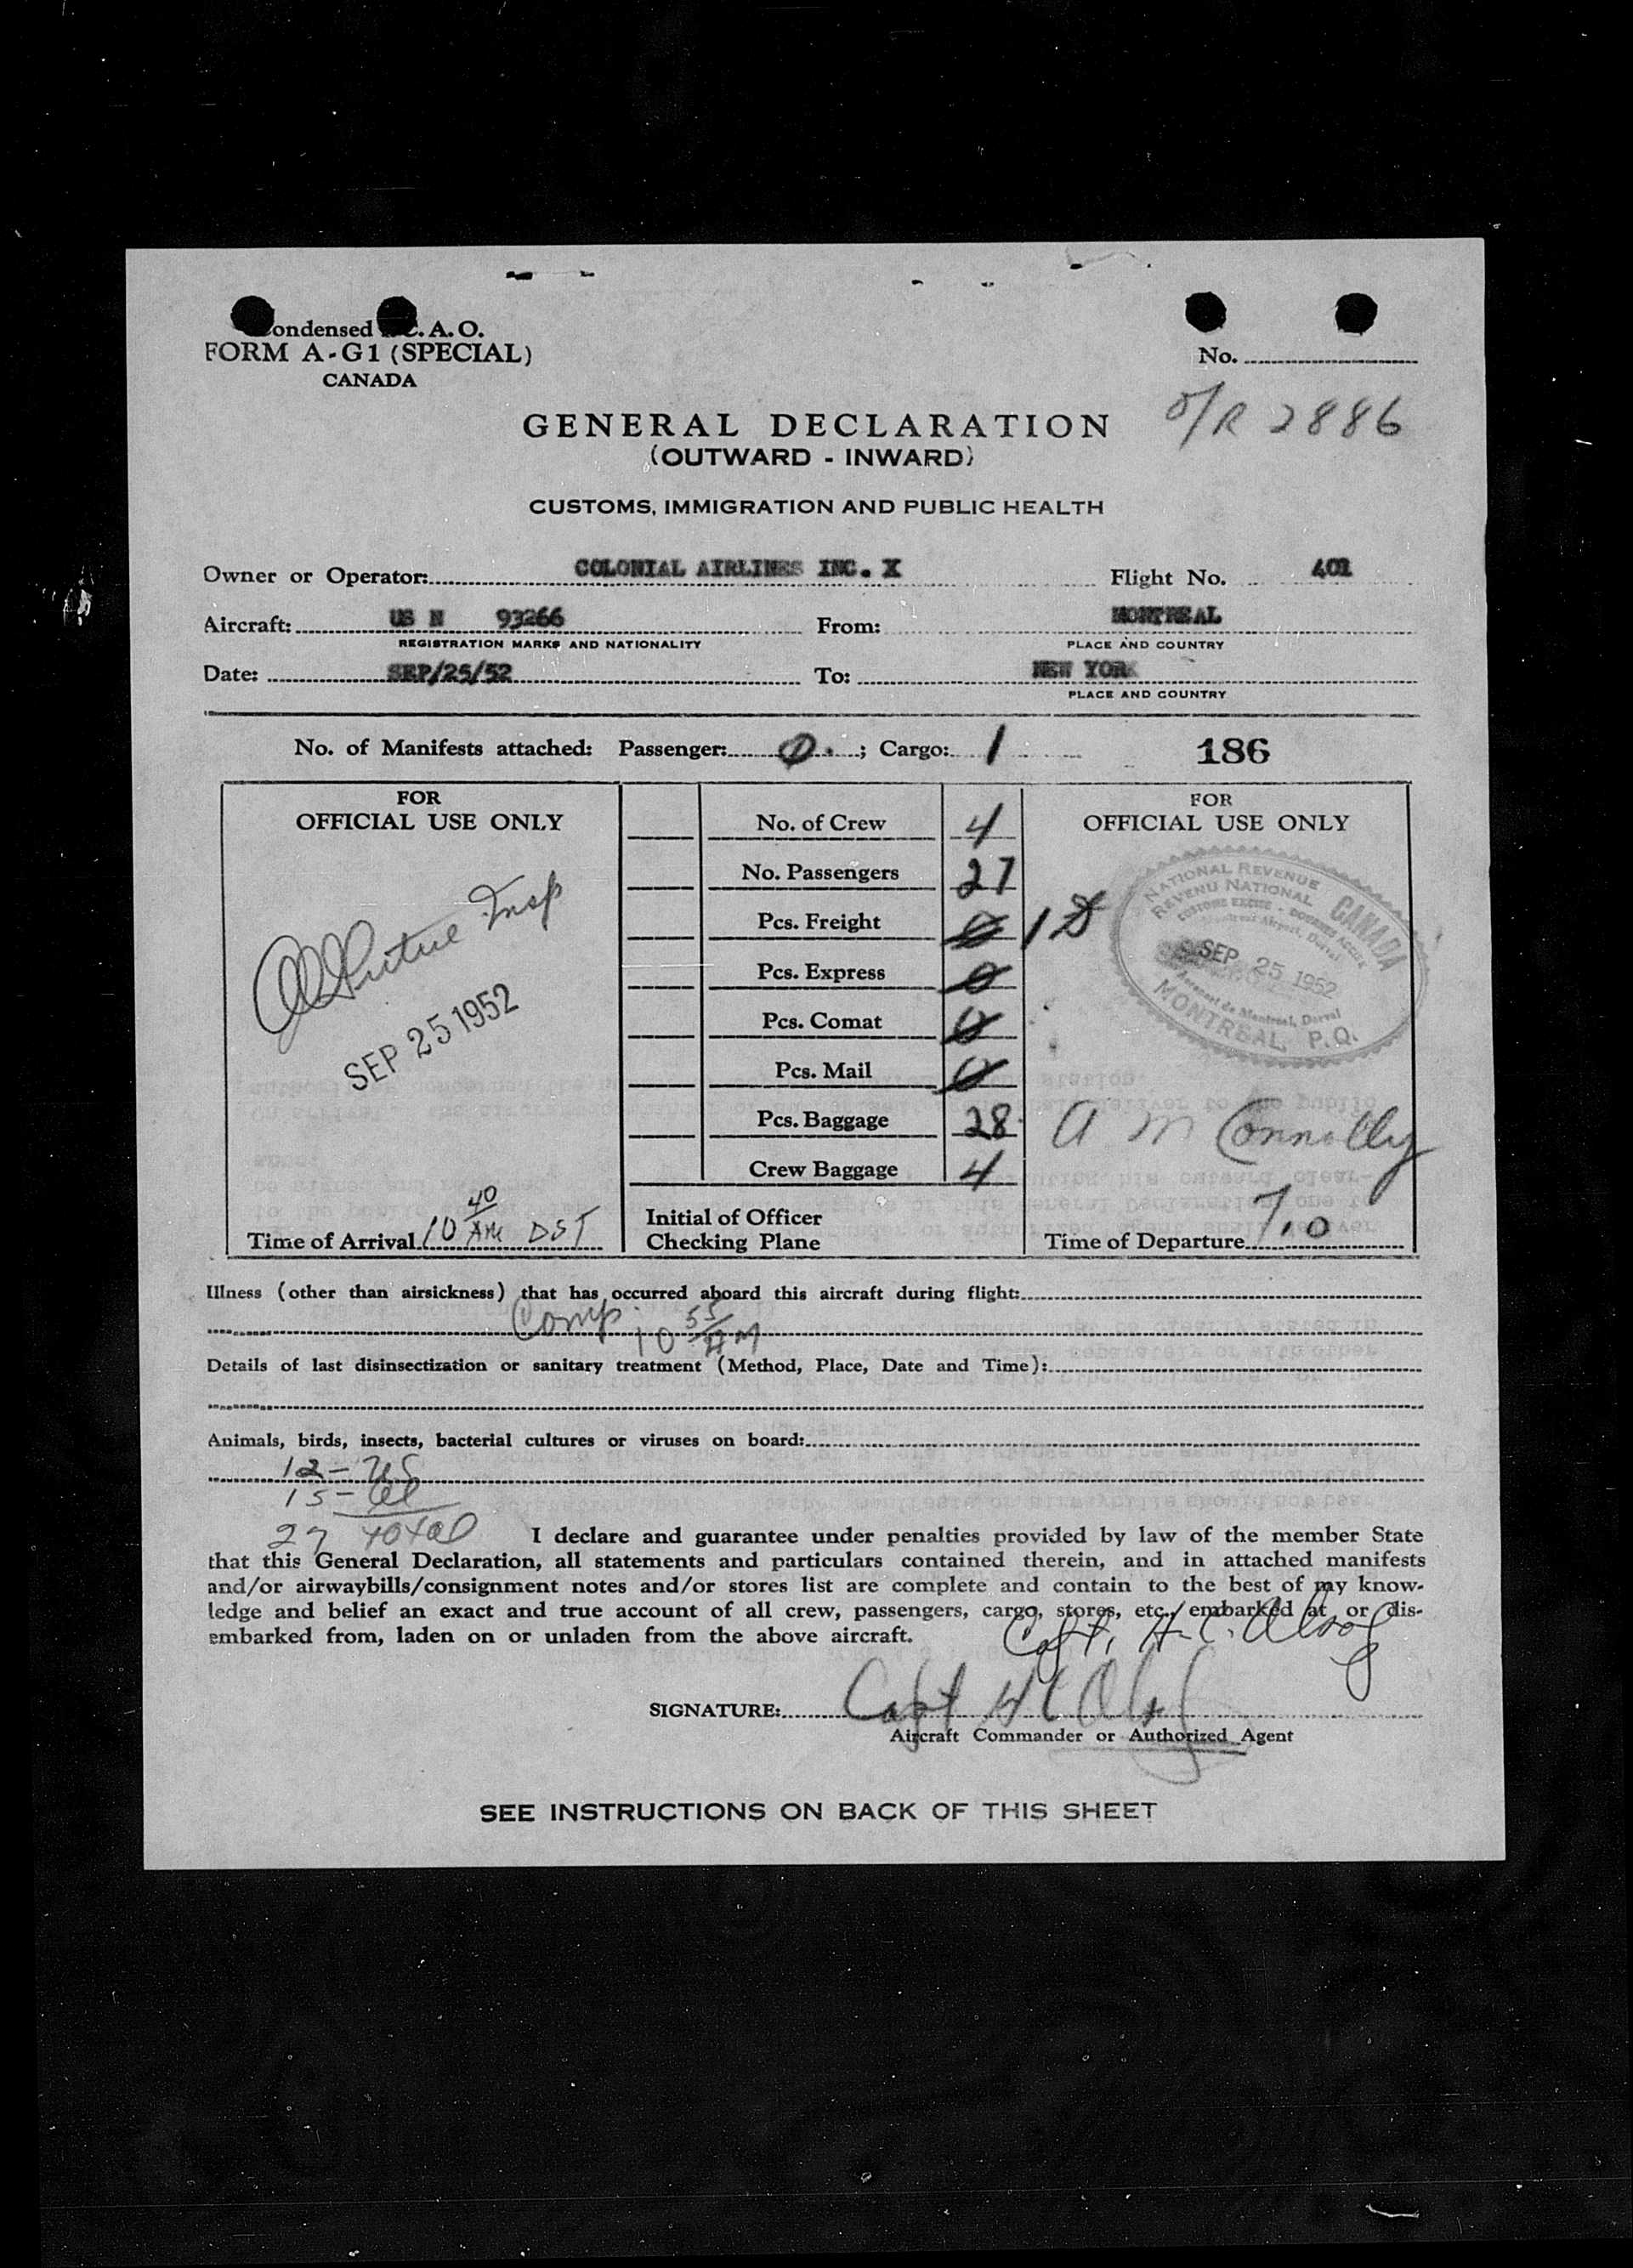 Condensed I.C.A.O.
FORM A-G1 (SPECIAL)
CANADA
No.
O/R 2886
GENERAL DECLARATION
(OUTWARD - INWARD)
CUSTOMS, IMMIGRATION AND PUBLIC HEALTH
Owner or Operator: COLONIAL AIRLINES INC. X Flight No. 401
Aircraft: US N 93266 From: MONTREAL
REGISTRATION MARKS AND NATIONALITY PLACE AND COUNTRY
Date: SEP/25/52 To: NEW YORK
PLACE AND COUNTRY
No. of Manifests attached: Passenger: 0 ; Cargo: 1 186
FOR
OFFICIAL USE ONLY
Insp
SEP 25 1952
Time of Arrival 10 40 AM DST
No. of Crew 4
No. Passengers 27
Pcs. Freight 0 1
Pcs. Express 0
Pcs. Comat 0
Pcs. Mail 0
Pcs. Baggage 28
Crew Baggage 4
Initial of Officer
Checking Plane
FOR
OFFICIAL USE ONLY
NATIONAL REVENUE
REVENU NATIONAL
CANADA
CUSTOMS EXCISE - DOUANES ACCISE
Montreal Airport, Dorval
SEP 25 1952
Aeroport de Montreal, Dorval
MONTREAL, P.Q.
A M Connolly
Time of Departure 7.0
Illness (other than airsickness) that has occurred aboard this aircraft during flight:
Comp. 10 55 AM
Details of last disinsectization or sanitary treatment (Method, Place, Date and Time):
Animals, birds, insects, bacterial cultures or viruses on board:
12 - US
15 - al
27 total
I declare and guarantee under penalties provided by law of the member State
that this General Declaration, all statements and particulars contained therein, and in attached manifests
and/or airwaybills/consignment notes and/or stores list are complete and contain to the best of my know-
ledge and belief an exact and true account of all crew, passengers, cargo, stores, etc., embarked at or dis-
embarked from, laden on or unladen from the above aircraft.
Capt. H.C.
SIGNATURE: Capt H C
Aircraft Commander or Authorized Agent
SEE INSTRUCTIONS ON BACK OF THIS SHEET